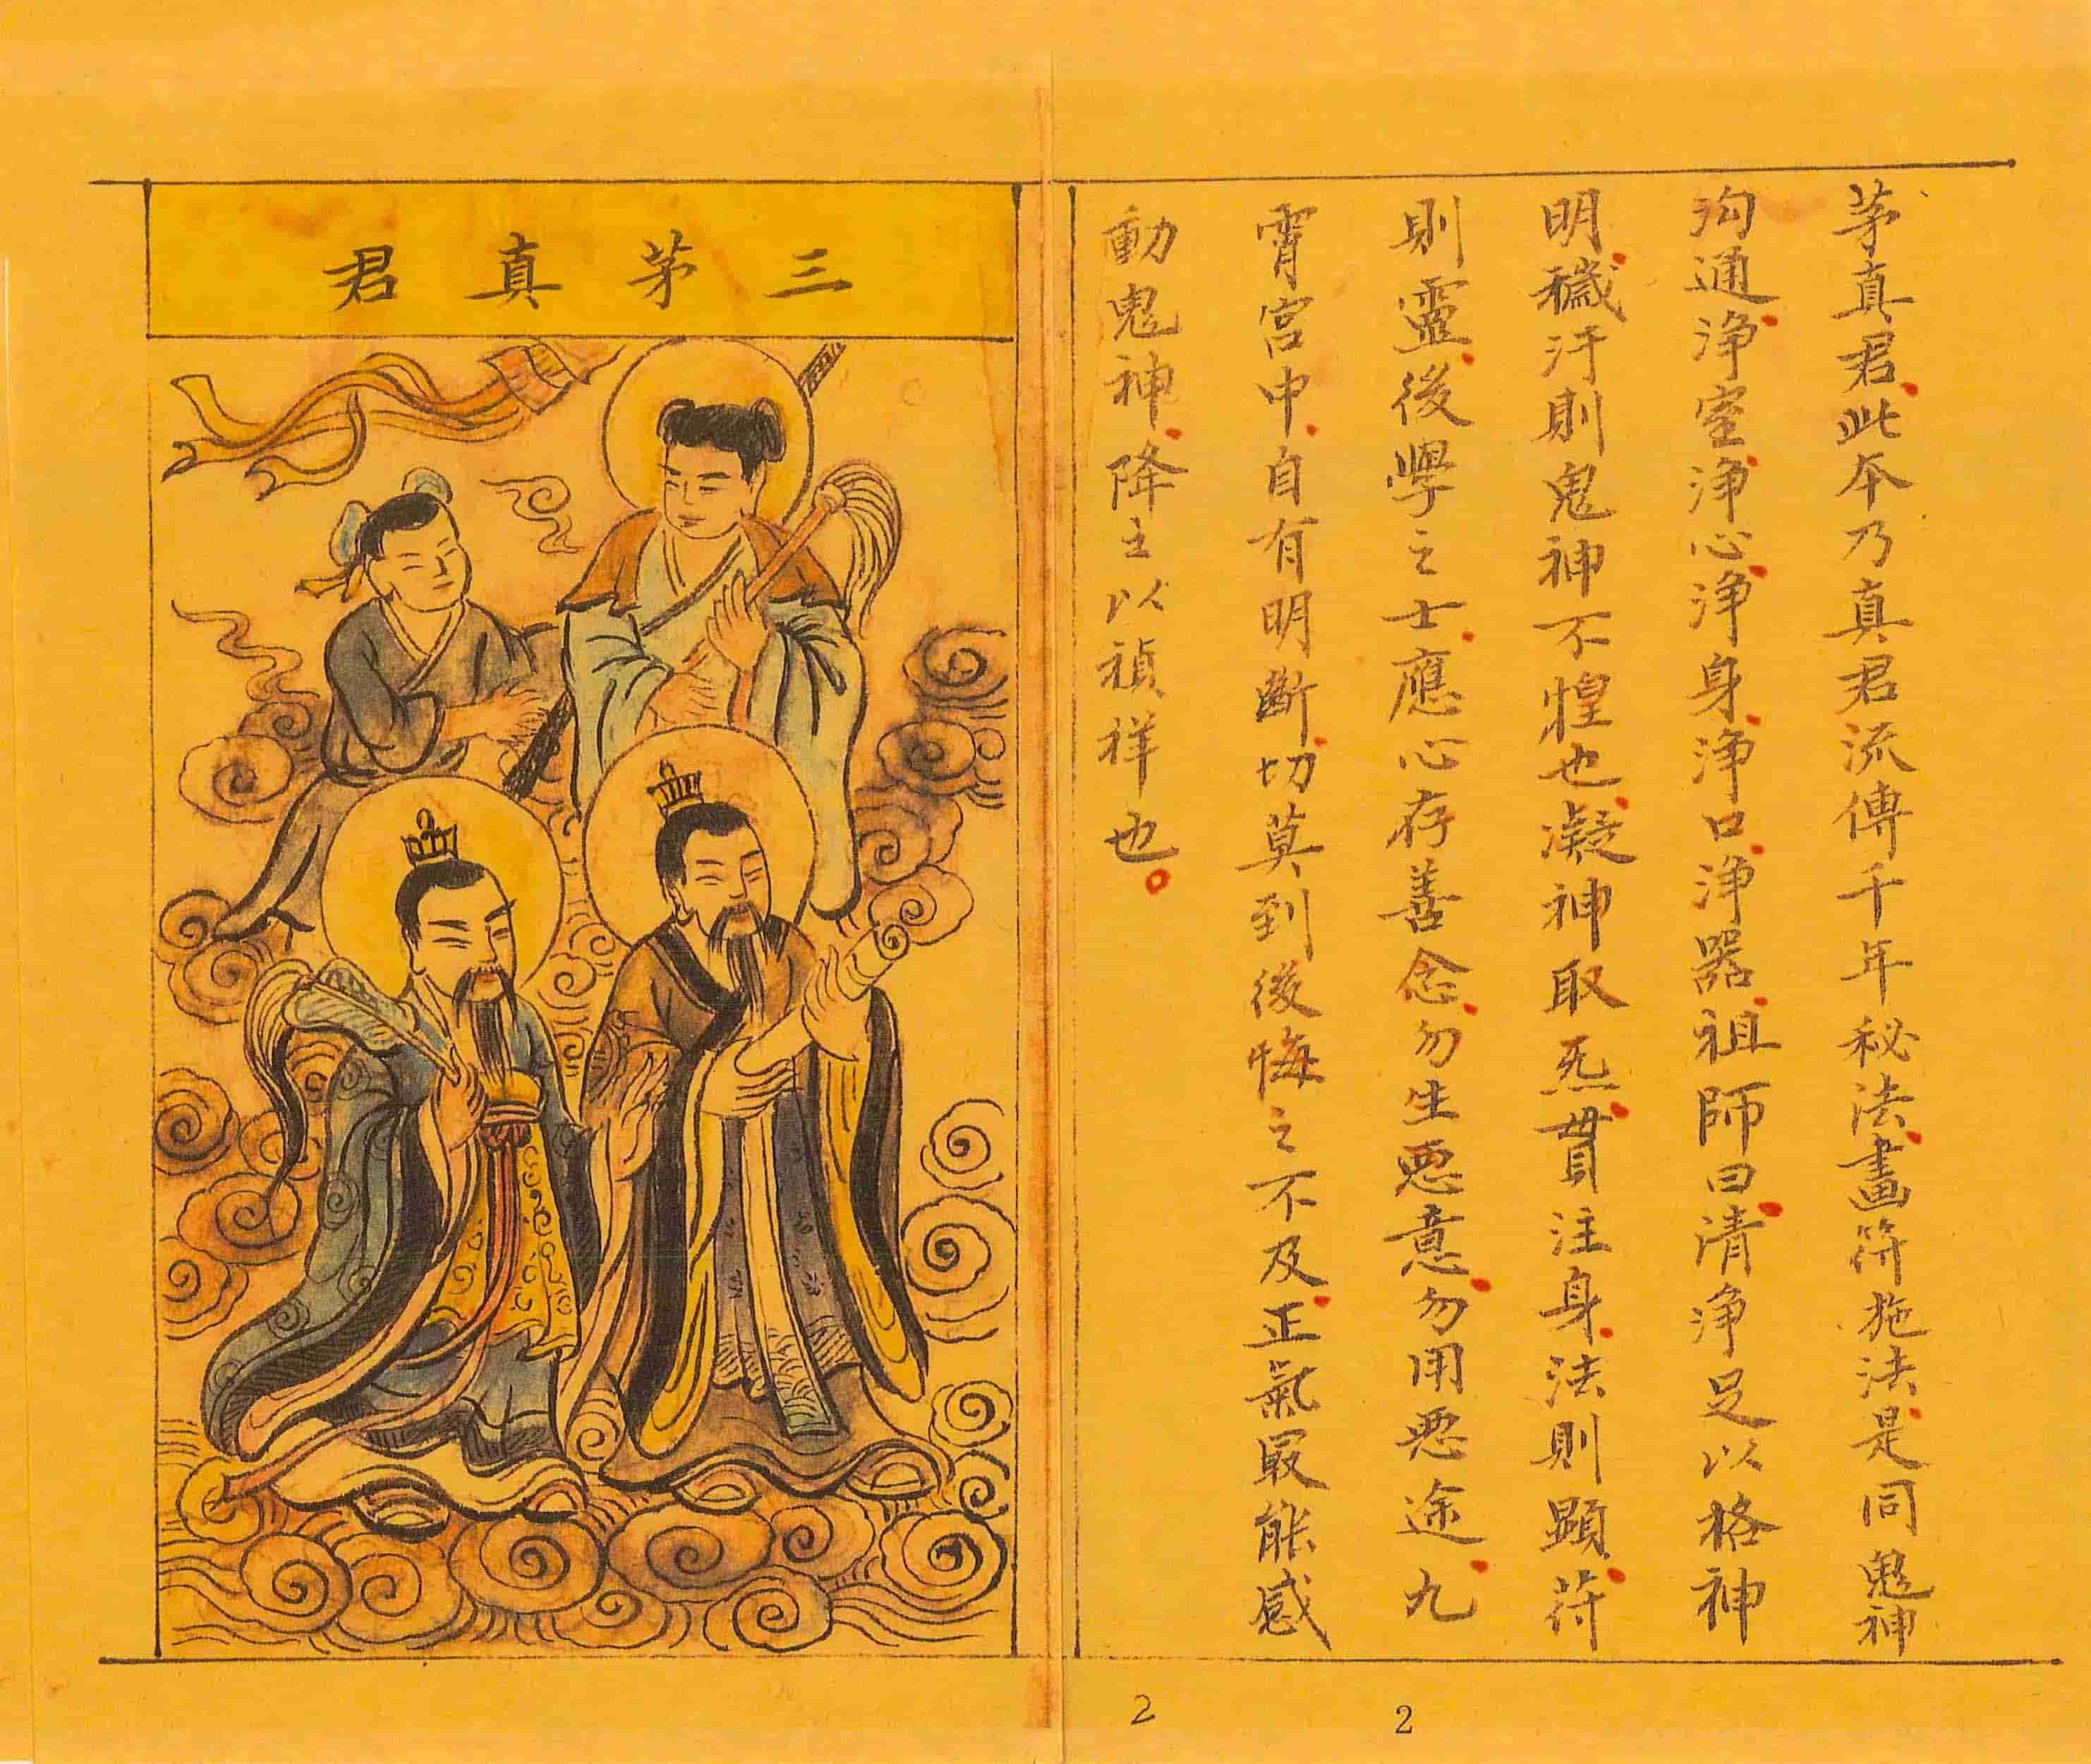 茅真君.此本乃真君流傳千年秘法.畫符施法.是同鬼神
沟通.淨室.淨心.淨身.淨口.淨器.祖師曰.清淨足以格神
明.穢汙則鬼神不惶也.凝神取炁.貫注身.法則顯.符
則靈.後學之士.應心存善念.勿生惡意.勿用惡途.九
霄宮中.自有明斷.切莫到後悔之不及.正氣最能感
動鬼神.降主以禎祥也。
三茅真君
2
2